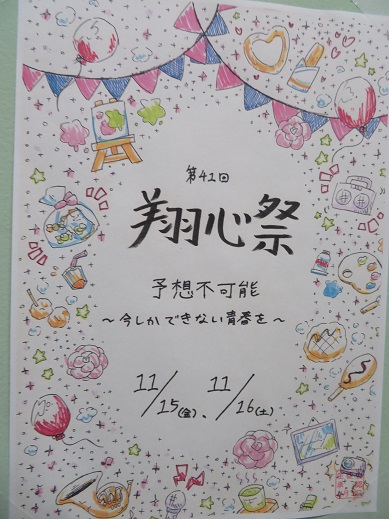 第41回
翔心祭
予想不可能
～今しかできない青春を～
11/15(金)、11/16(土)